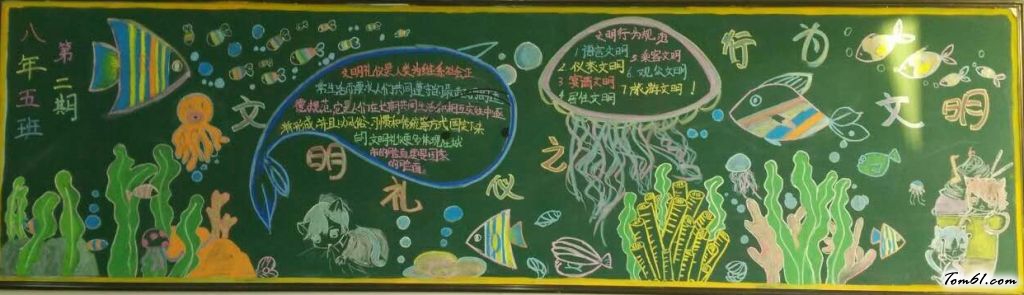 八年五班
第二期
文明礼仪之行为文明
文明礼仪是人类为维系社会正
常生活而要求人们共同遵守的最
德规范,它是人们在长期共同生活和相互交往中逐
渐形成,并且以风俗、习惯和传统等方式固定下来
的
文明行为规范
1.语言文明
2.仪表文明
4.居住文明
5.乘客文明
6.观公文明
7.旅游文明!
Tom61.com